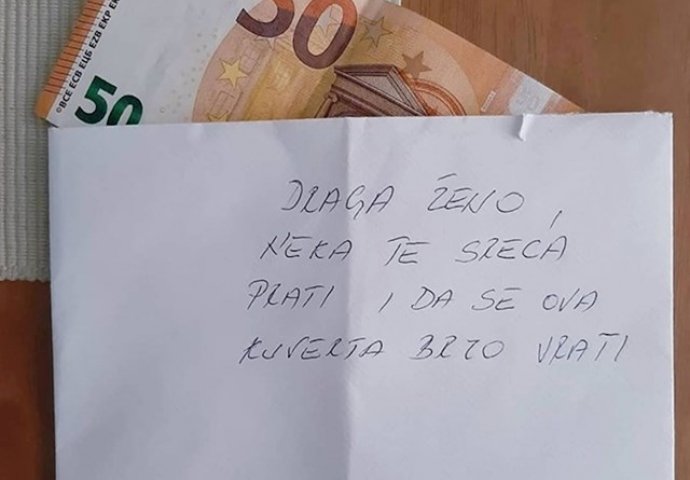 ©BCE ECB ЕЦБ EZB EKP EK
50
50
DRAGA ŽENO,
NEKA TE SREĆA
PRATI I DA SE OVA
KUVERTA BRZO VRATI